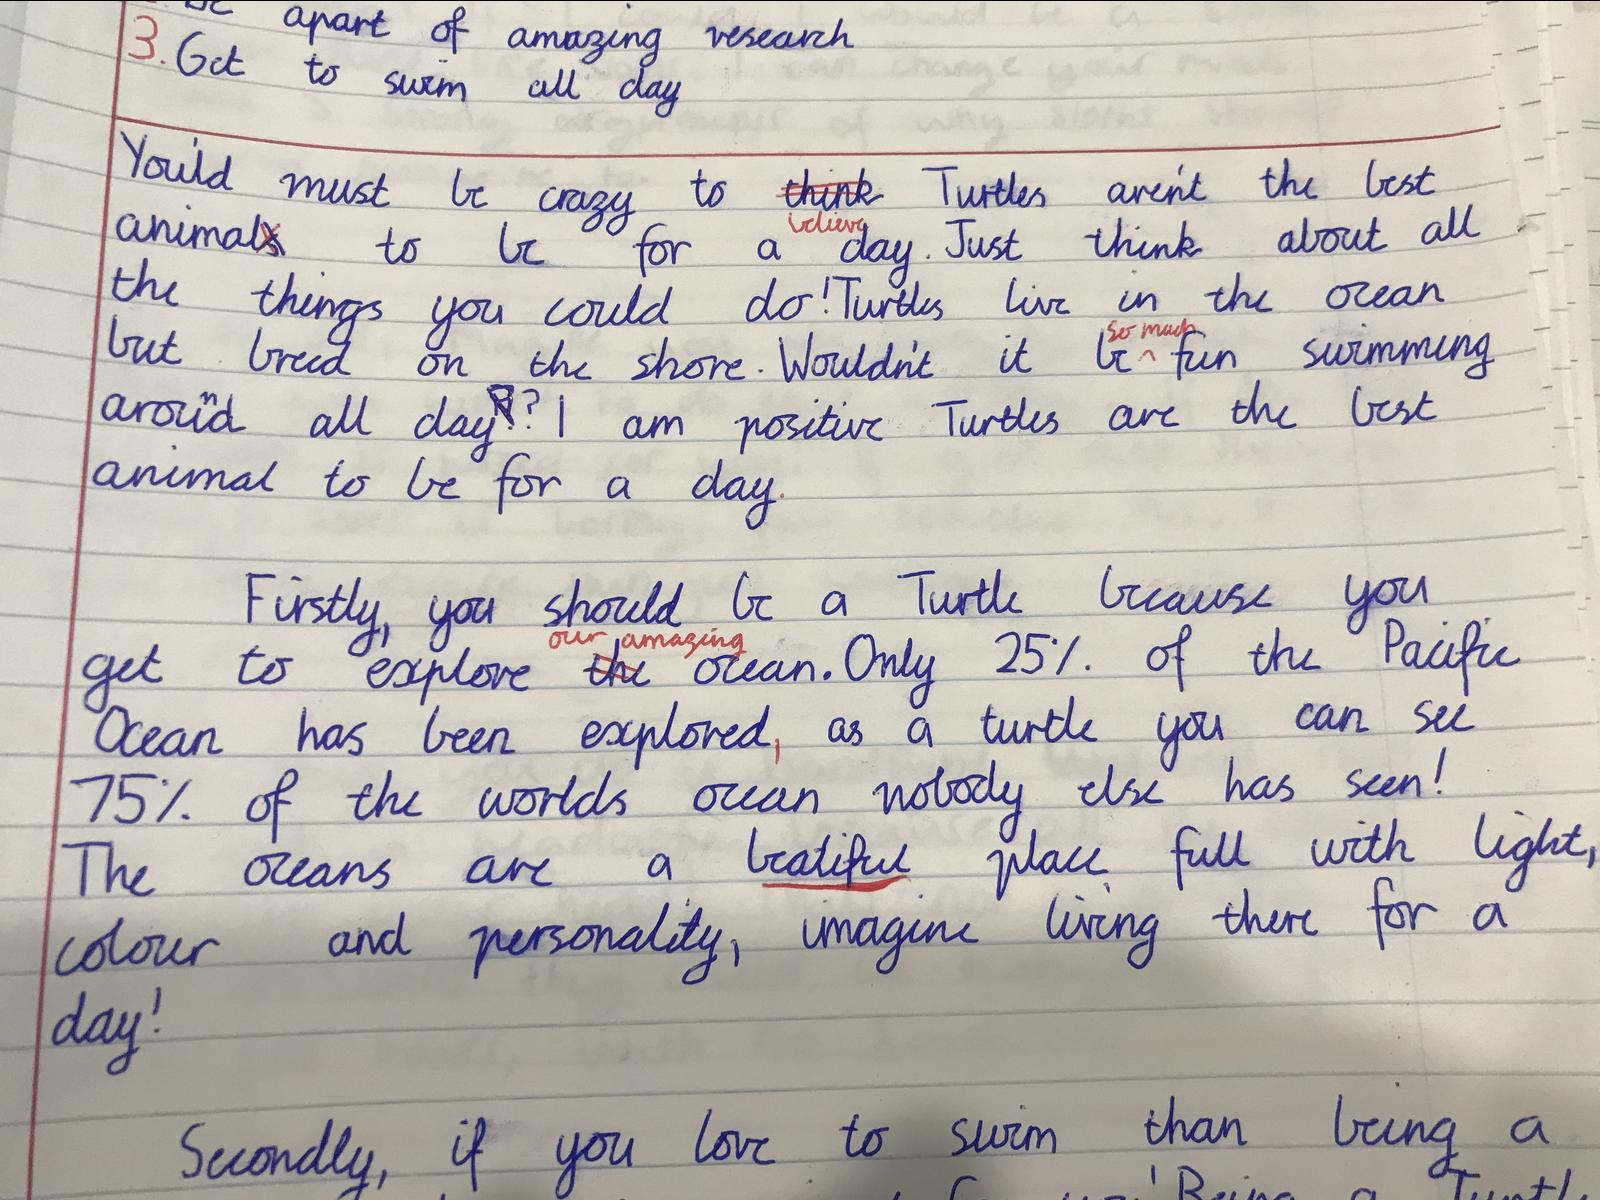 be apart of amazing research
3. Get to swim all day
You'ld must be crazy to think Turtles aren't the best
believe
animals to be for a day. Just think about all
the things you could do! Turtles live in the ocean
so much
but breed on the shore. Wouldn't it be ^ fun swimming
around all day? I am positive Turtles are the best
animal to be for a day.
Firstly, you should be a Turtle because you
our amazing
get to explore the ocean. Only 25% of the Pacific
Ocean has been explored, as a turtle you can see
75% of the worlds ocean nobody else has seen!
The oceans are a beatiful place full with light,
colour and personality, imagine living there for a
day!
Secondly, if you love to swim than being a
Being a Turtle